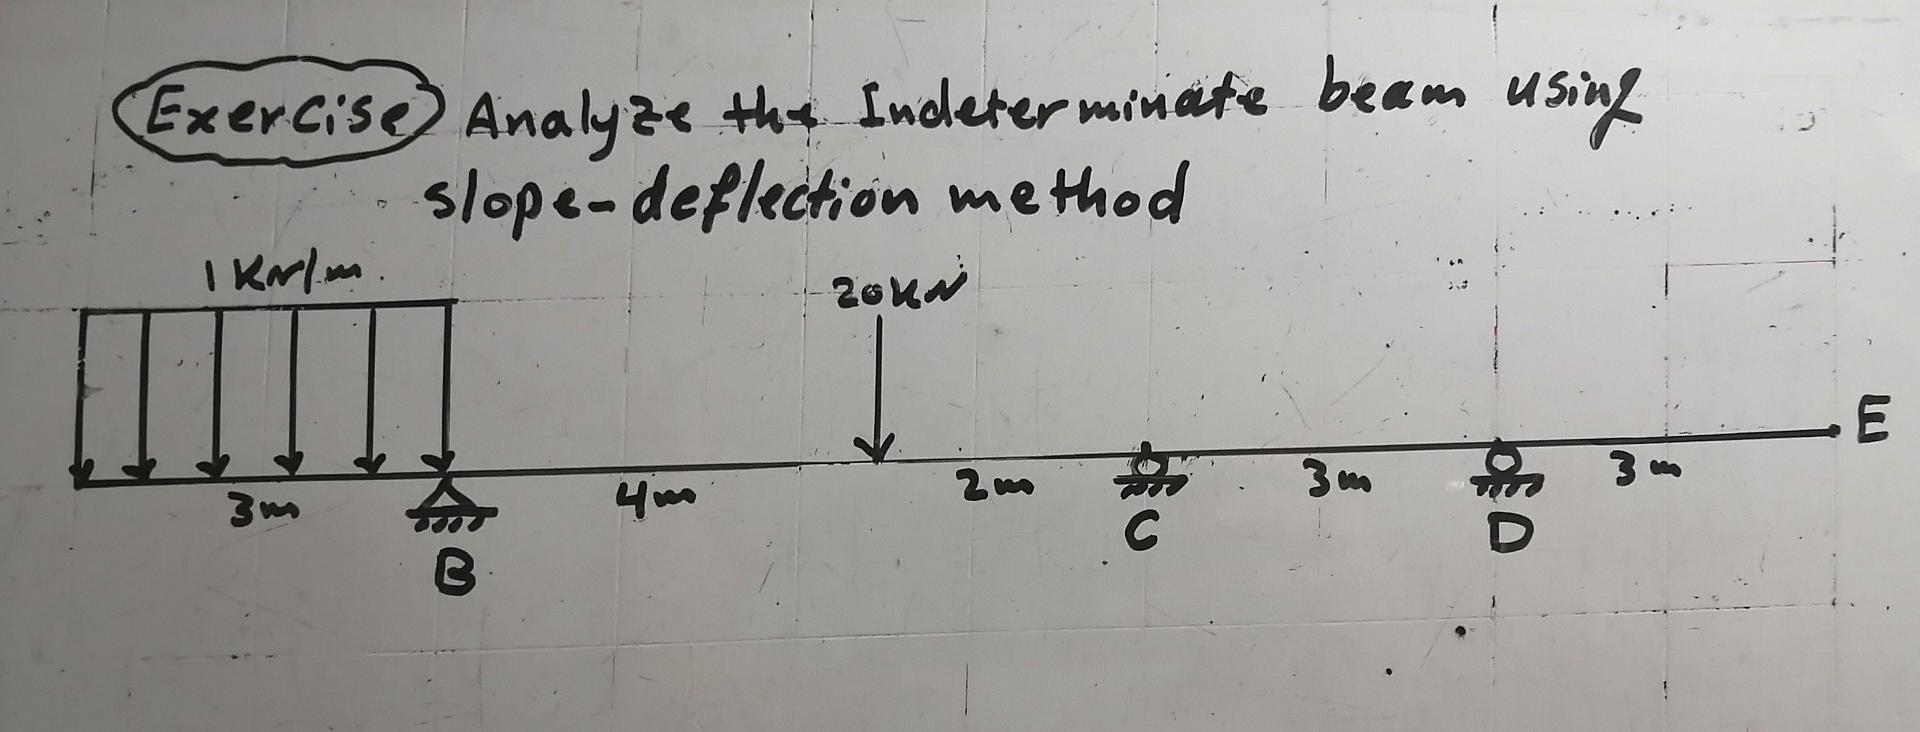 Exercise Analyze the Indeterminate beam using
slope-deflection method
1 KN/m
20KN
E
3m
4m
2m
3m
3m
B
C
D